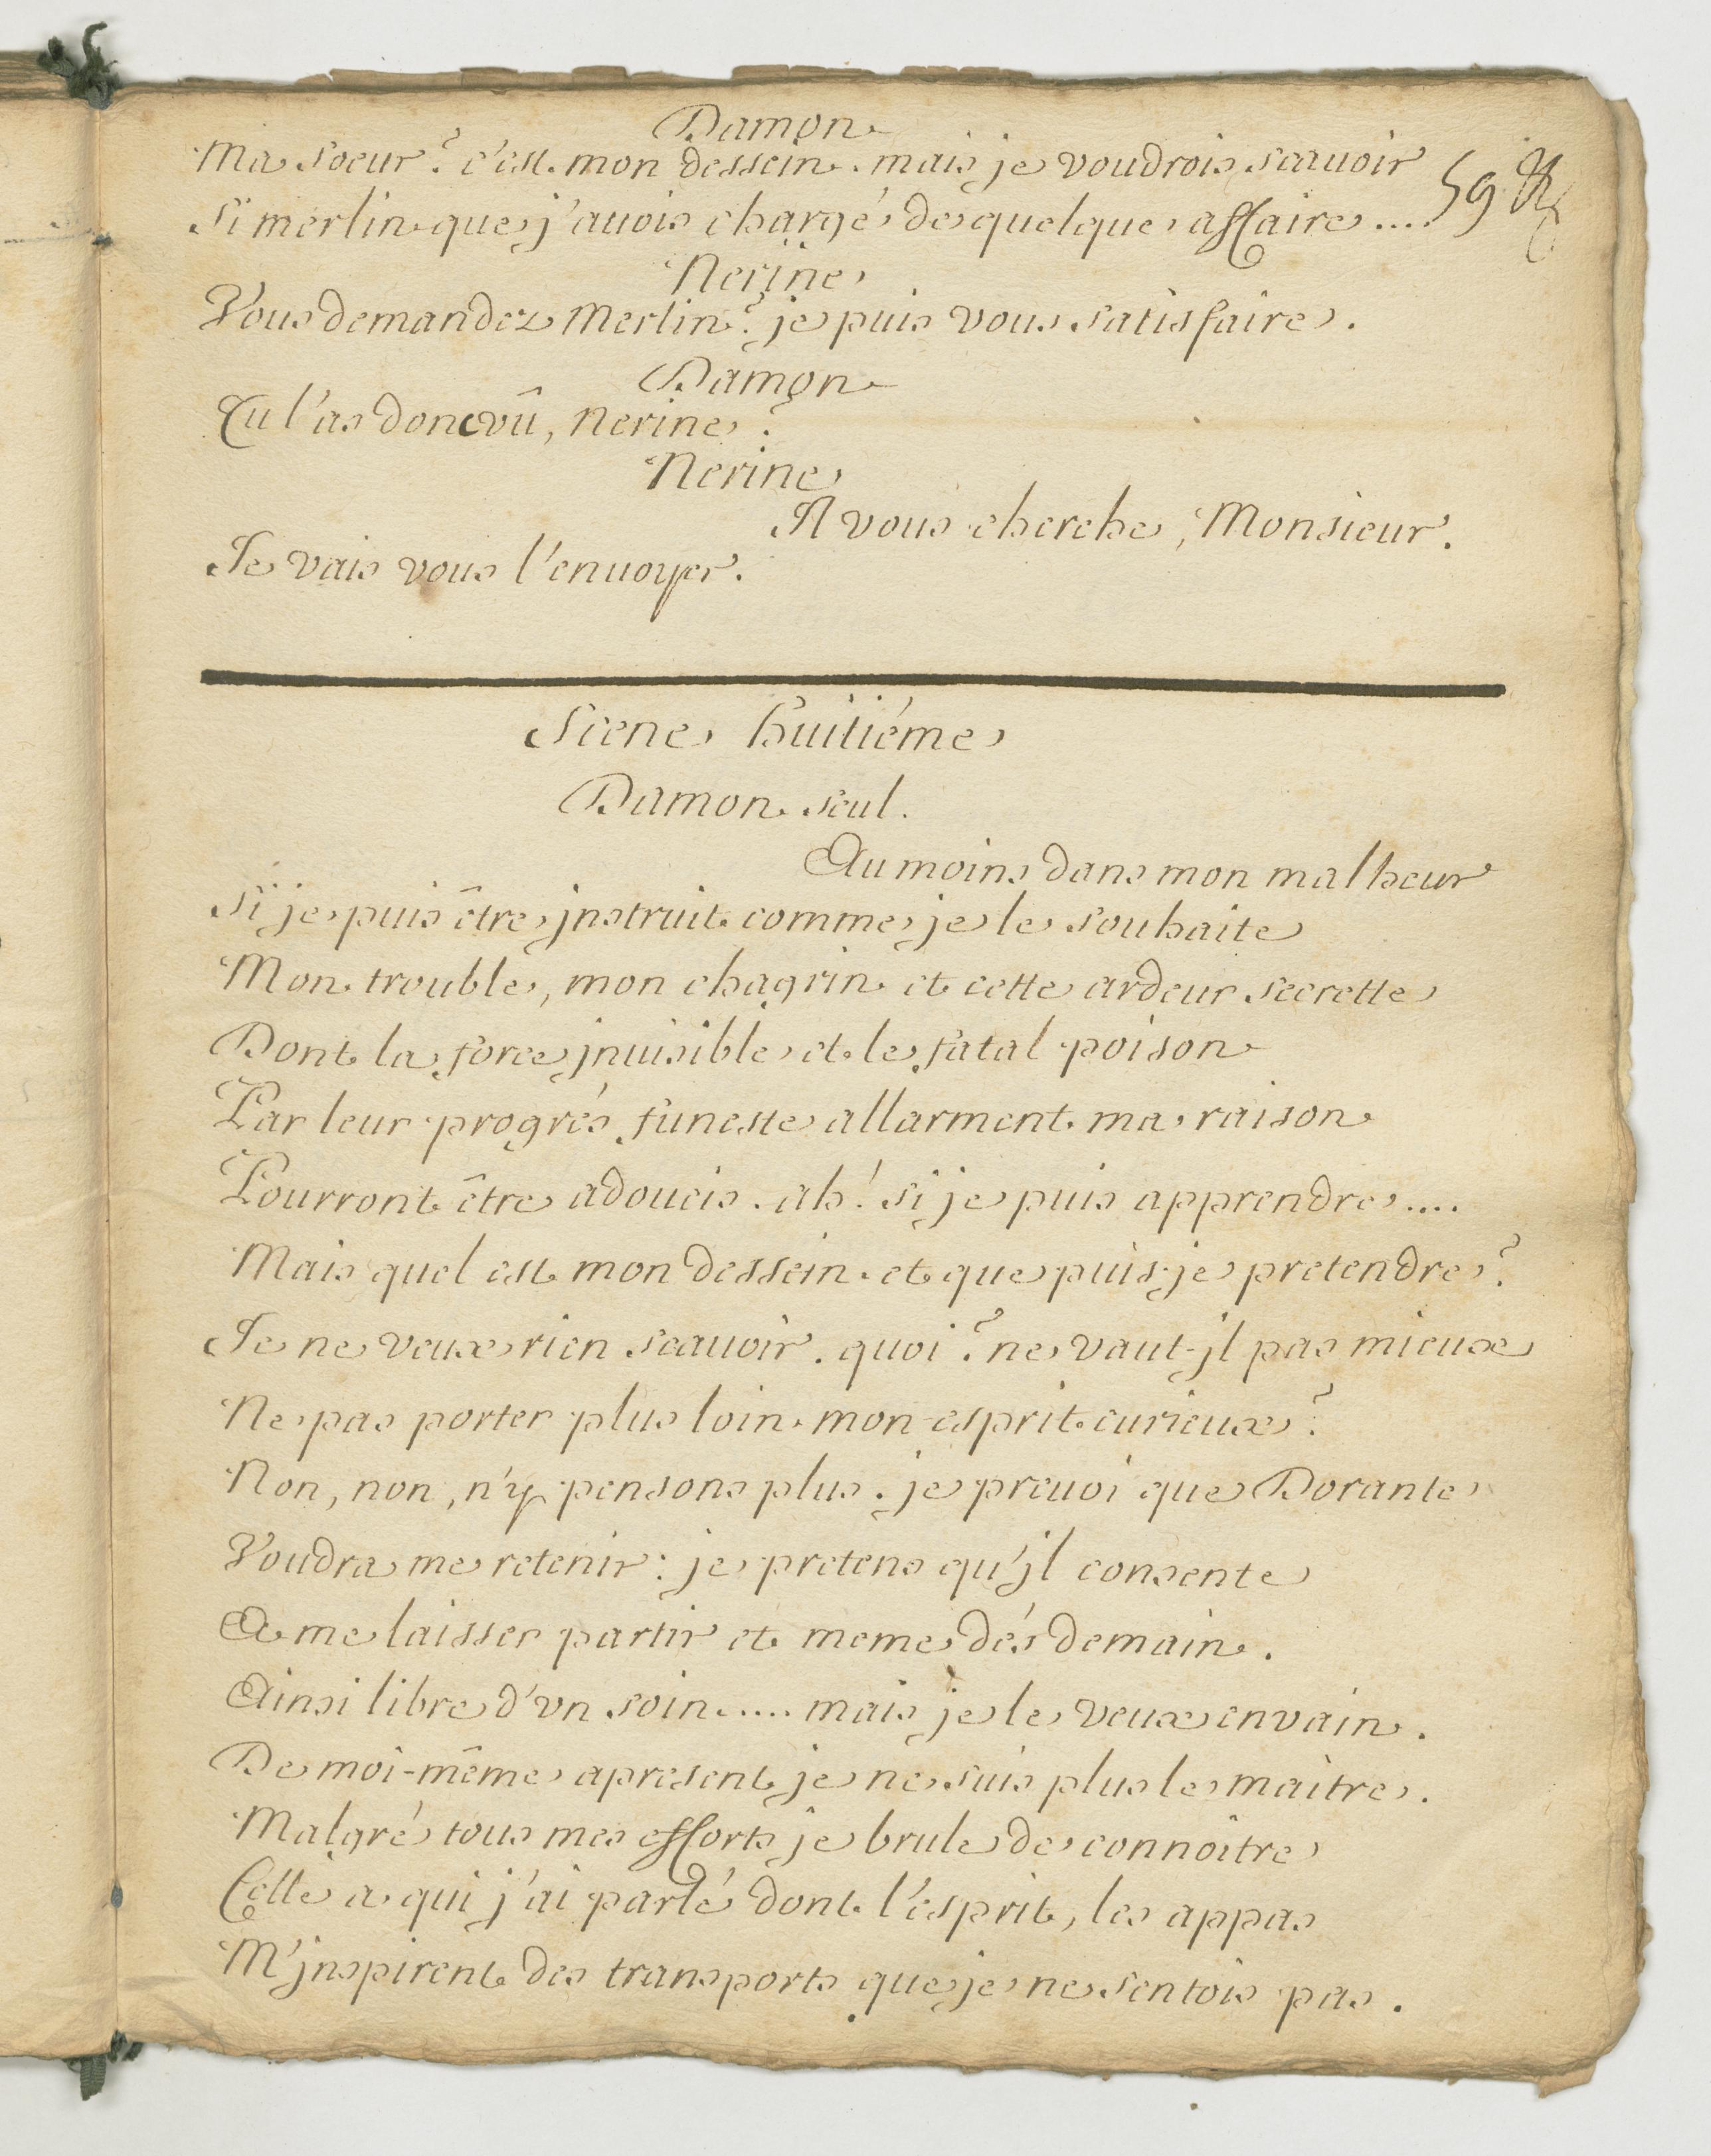 Damon
Ma soeur? c'est mon dessein. mais je voudrois scauoir
Si merlin que j'auois chargé de quelque affaire....
59
Nerine
Vous demandez Merlin? je puis vous satisfaire.
Damon
Tu l'as donc vû, Nerine?
Nerine
Il vous cherche, Monsieur.
Je vais vous l'enuoyer.
Scene huitiéme
Damon seul.
Au moins dans mon malheur
Si je puis être jnstruit comme je le souhaite
Mon trouble, mon chagrin et cette ardeur secrette
Dont la force jnuisible et le fatal poison
Par leur progrés funeste allarment ma raison
Pourront être adoucis. ah! si je puis apprendre....
Mais quel est mon dessein. et que puis-je pretendre?
Je ne veux rien scauoir. quoi? ne vaut-jl pas mieux
Ne pas porter plus loin mon esprit curieux?
Non, non, n'y pensons plus. je preuoi que Dorante
Voudra me retenir: je pretens qu'jl consente
A me laisser partir et meme dés demain.
Ainsi libre d'vn soin.... mais je le veux envain.
De moi-même apresent je ne suis plus le maitre.
Malgré tous mes efforts je brule de connoître
Celle a qui j'ai parlé dont l'esprit, les appas
M'jnspirent des transports que je ne sentois pas.